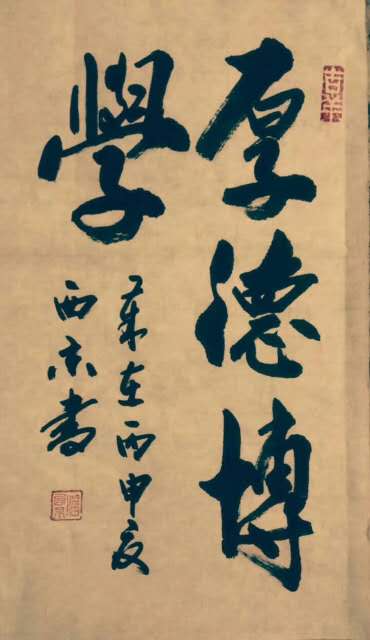 厚德博
學
歲在丙申夏
西京書